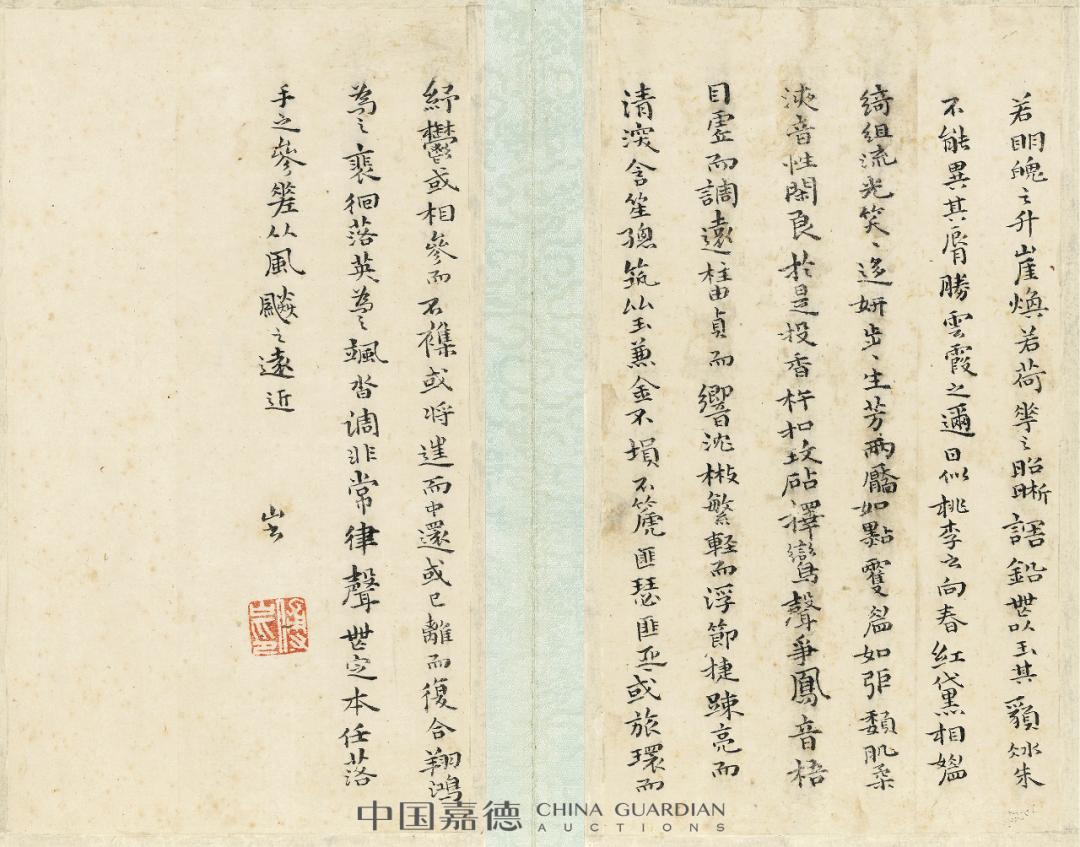 若明魄之升崖煥若荷華之昭晰語鉛無以玉其貌冰朱
不能異其脣勝雲霞之邇日似桃李之向春紅黛相媚
綺組流光笑笑逐妍步步生芳兩靨如點雙眉如張頹肌柔
液音性閑良於是投香杵扣玟砧擇鸞聲爭鳳音梧
目虛而調遠柱由貞而響沈散繁輕而浮節捷踈亮而
清深含笙總筑比玉兼金不塤不箎匪瑟匪琴或旅環而
紓鬱或相參而不雜或將進而中還或已離而復合翔鴻
為之裴徊落英為之颯沓調非常律聲無定本任落
手之參差從風飇之遠近
中国嘉德 CHINA GUARDIAN
AUCTIONS